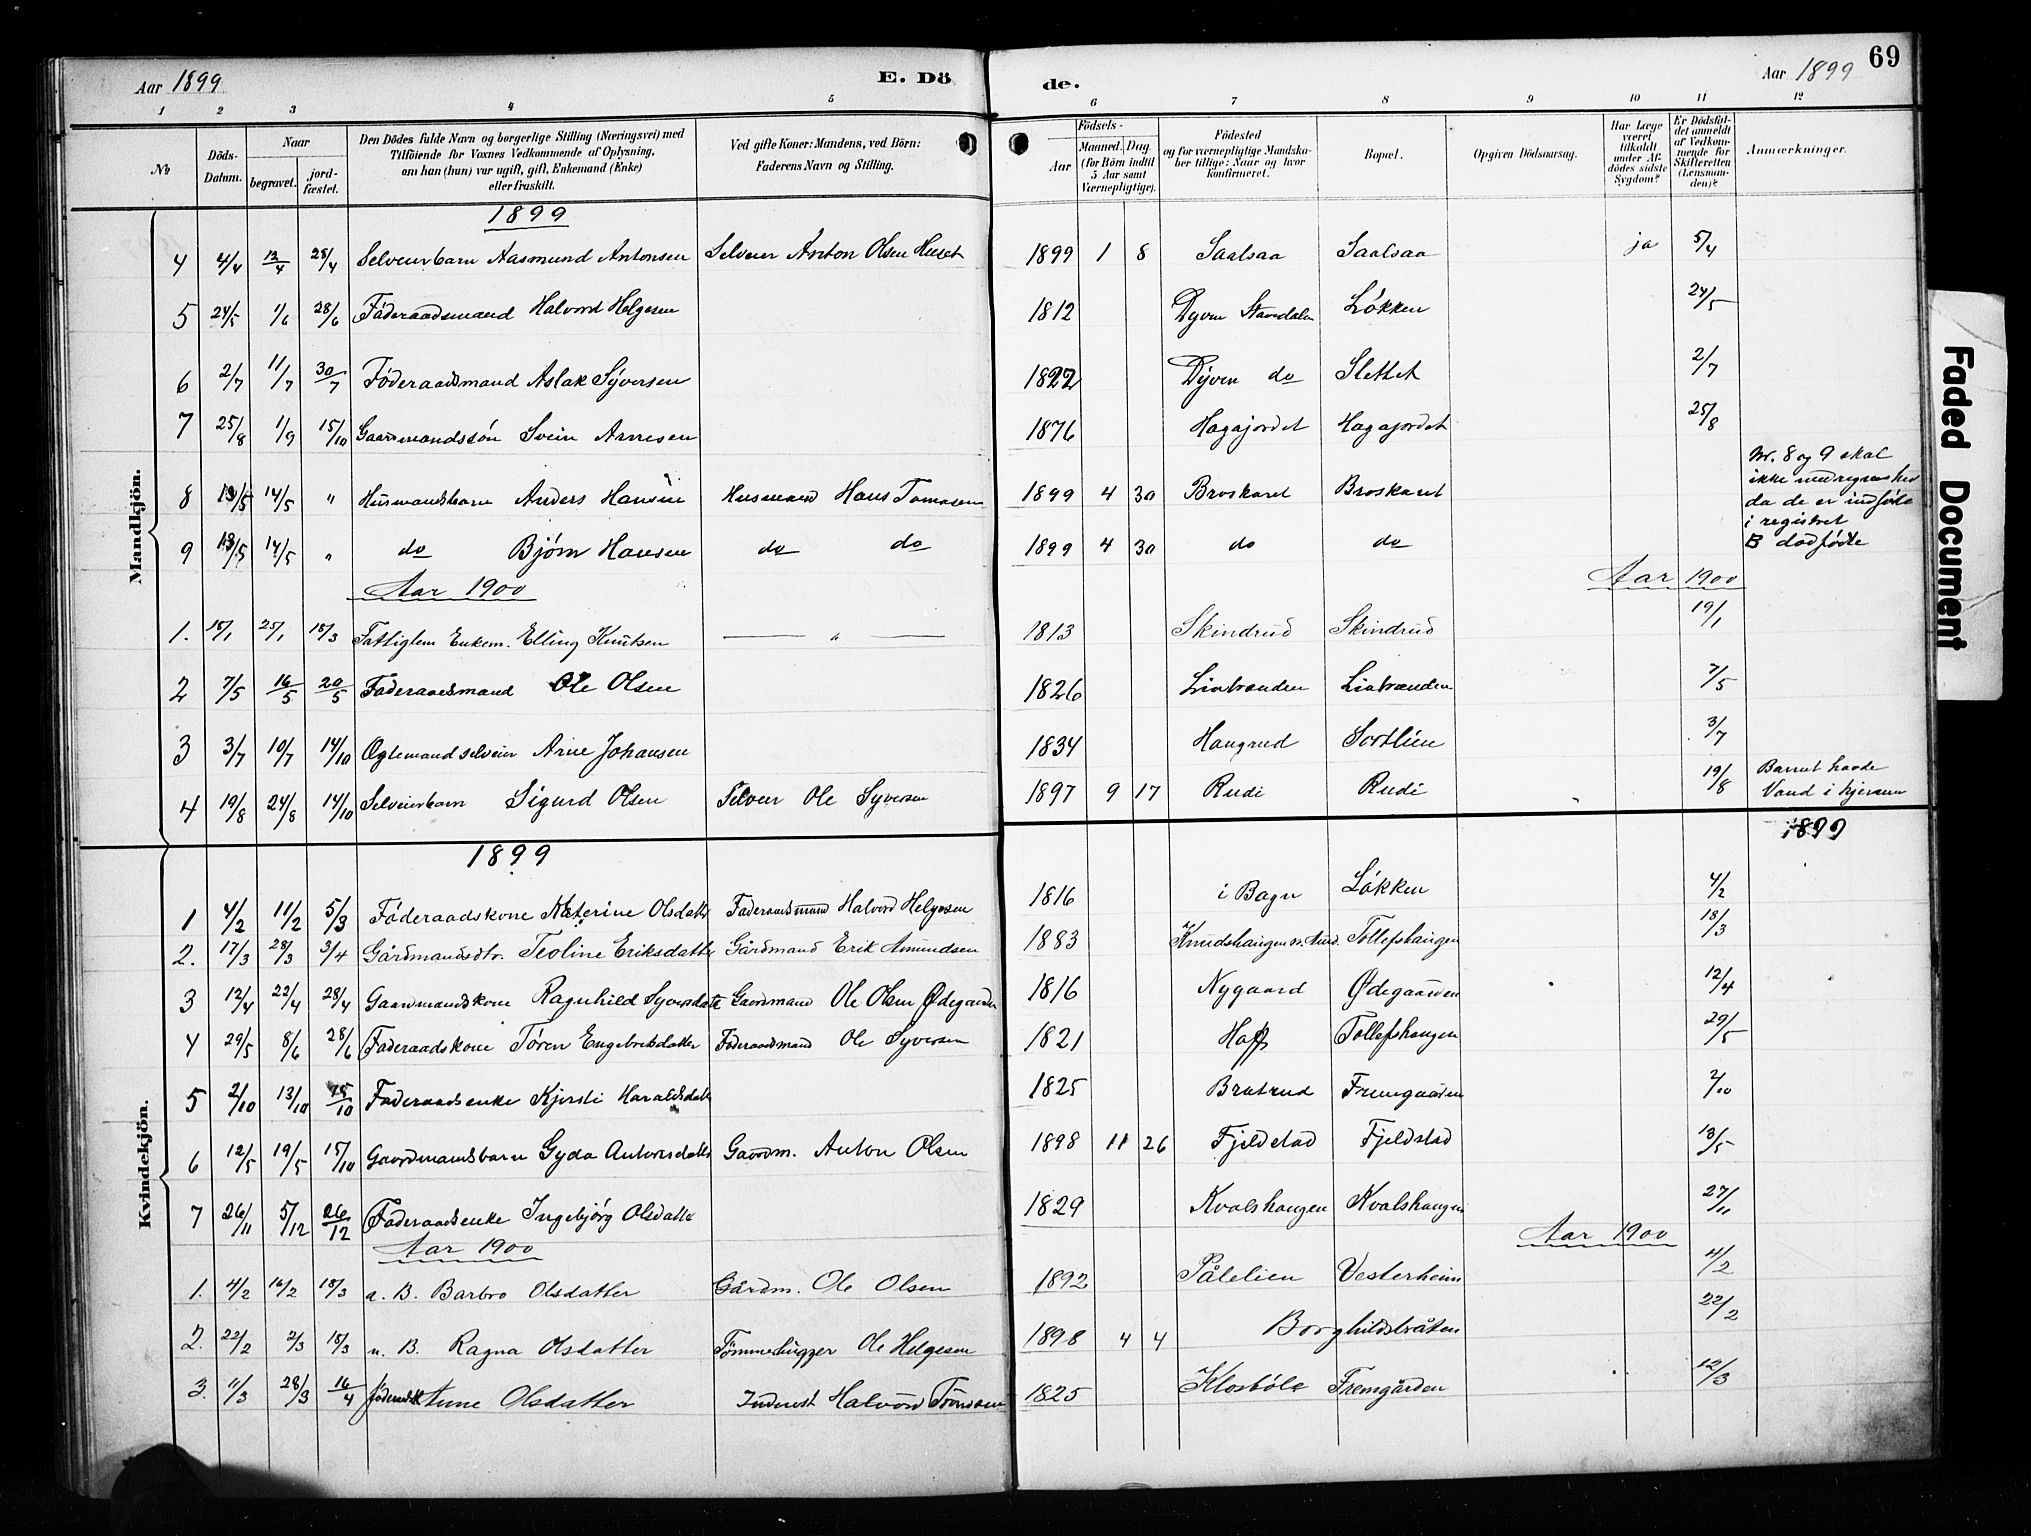 Aar 1899 E. Dö de. Aar 1899 69
1 2 3 4 5 6 7 8 9 10 11 12
No
Döds-Datum.
Naar
begravet.
jord-fæstet.
Den Dödes fulde Navn og borgerlige Stilling (Næringsvei) med
Tilföiende for Voxnes Vedkommende af Oplysning,
om han (hun) var ugift, gift, Enkemand (Enke)
eller fraskilt.
Ved gifte Koner: Mandens, ved Börn:
Faderens Navn og Stilling.
Födsels-
Aar
Maaned. Dag.
(for Börn indtil
5 Aar samt
Værnepligtige).
Födested
og for værnepligtige Mandska-
ber tillige: Naar og hvor
konfirmeret.
Bopæl.
Opgiven Dödsaarsag.
Har Læge
været
tilkaldt
under Af-
dödes sidste
Sygdom?
Er Dödsfal-
det anmeldt
af Vedkom-
mende for
Skifteretten
(Lensman-
den)?
Anmærkninger.
Mandkjön.
1899
4 4/4 12/4 28/4 Selveierbarn Aasmund Antonsen Selveier Anton Olsen Huset 1899 1 8 Saalsaa Saalsaa ja 5/4
5 24/5 1/6 28/6 Föderaadsmand Halvord Helgesen 1812 Dyven Stavedalen Lökken 24/5
6 2/7 11/7 30/7 Föderaadsmand Aslak Syversen 1822 Dyven do Slettet 2/7
7 25/8 1/9 15/10 Gaardmandssön Svein Arnesen 1876 Hagajordet Hagajordet 25/8
8 13/5 14/5 " Husmandsbarn Anders Hansen Husmand Hans Tomasen 1899 4 30 Broskaret Broskaret Nr. 8 og 9 skal
ikke medregnes her
da de er indførte
i registret
B dødfødte
9 13/5 14/5 " do Bjørn Hansen do do 1899 4 30 do do
Aar 1900 Aar 1900
1. 15/1 25/1 18/3 Fattiglem Enkem. Elling Knutsen " 1813 Skindrud Skindrud 19/1
2 7/5 16/5 20/5 Föderaadsmand Ole Olsen 1826 Liabrænden Liabrænden 7/5
3 3/7 10/7 14/10 Ægtemand selveier Arne Johansen 1834 Haugrud Sortlien 3/7
4 19/8 24/8 14/10 Selveierbarn Sigurd Olsen Selveier Ole Syversen 1897 9 17 Rudi Rudi 19/8 Barnet havde
Vand i hjernen
Kvindekjön.
1899 1899
1 4/2 11/2 5/3 Föderaadskone Katerine Olsdatter Föderaadsmand Halvord Helgesen 1816 i Bagn Lökken 4/2
2. 17/3 28/3 3/4 Gårdmandsdtr. Teoline Eriksdatter Gårdmand Erik Amundsen 1883 Knudshaugen n. Aurd. Tollefshaugen 18/3
3 12/4 22/4 28/4 Gaardmandskone Ragnhild Syversdatter Gaardmand Ole Olsen Ødegaarden 1816 Nygaard Ødegaarden 12/4
4 29/5 8/6 28/6 Föderaadskone Tören Engebretsdatter Föderaadsmand Ole Syversen 1821 Hoff Tollefshaugen 29/5
5 2/10 13/10 15/10 Föderaadsenke Kjersti Haraldsdatter 1825 Bratrud Fremgaarden 2/10
6 12/5 19/5 15/10 Gaardmandsbarn Gyda Antonsdatter Gaardm. Anton Olsen 1898 11 26 Fjeldstad Fjeldstad 13/5
7 26/11 5/12 26/12 Föderaadsenke Ingebjörg Olsdatter 1829 Kvalshaugen Kvalshaugen 27/11
Aar 1900 Aar 1900
1. 4/2 16/2 18/3 u. B. Barbro Olsdatter Gårdm. Ole Olsen 1892 Pålelien Vesterheim 4/2
2. 22/2 2/3 18/3 u. B. Ragna Olsdatter Tømmerhugger Ole Helgesen 1898 4 4 Borghildsbråten 22/2
3. 11/3 28/3 16/4 Anne Olsdatter Inderst Halvord Tronsen 1825 Klosbøle Fremgården 12/3
Faded Document